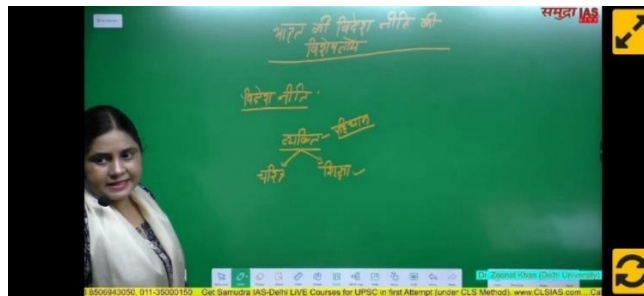 समुद्रा IAS
भारत की विदेश नीति की
विशेषताएँ
विदेश नीति
व्यक्ति - पहिचान
चरित्र शिक्षा
Dr. Zeenat Khan (Delhi University)
8506943050, 011-35000150 Get Samudra IAS-Delhi LIVE Courses for UPSC in first Attempt (under CLS Method). www.CLSIAS.com...